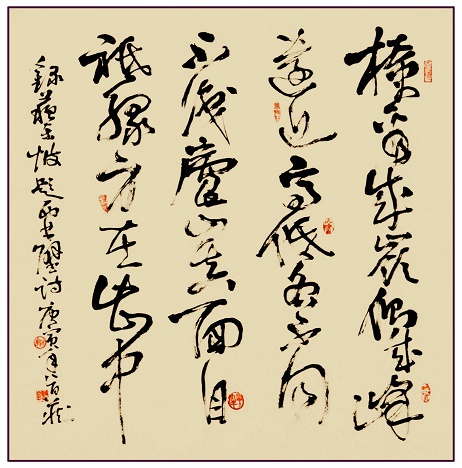 橫看成嶺側成峰
遠近高低各不同
不識廬山真面目
祗緣身在此山中
錄蘇東坡題西林壁詩 庚寅年